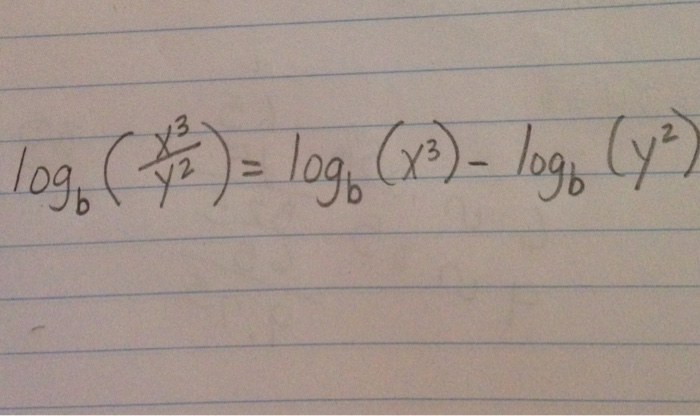 log_b (x³/y²) = log_b (x³) - log_b (y²)